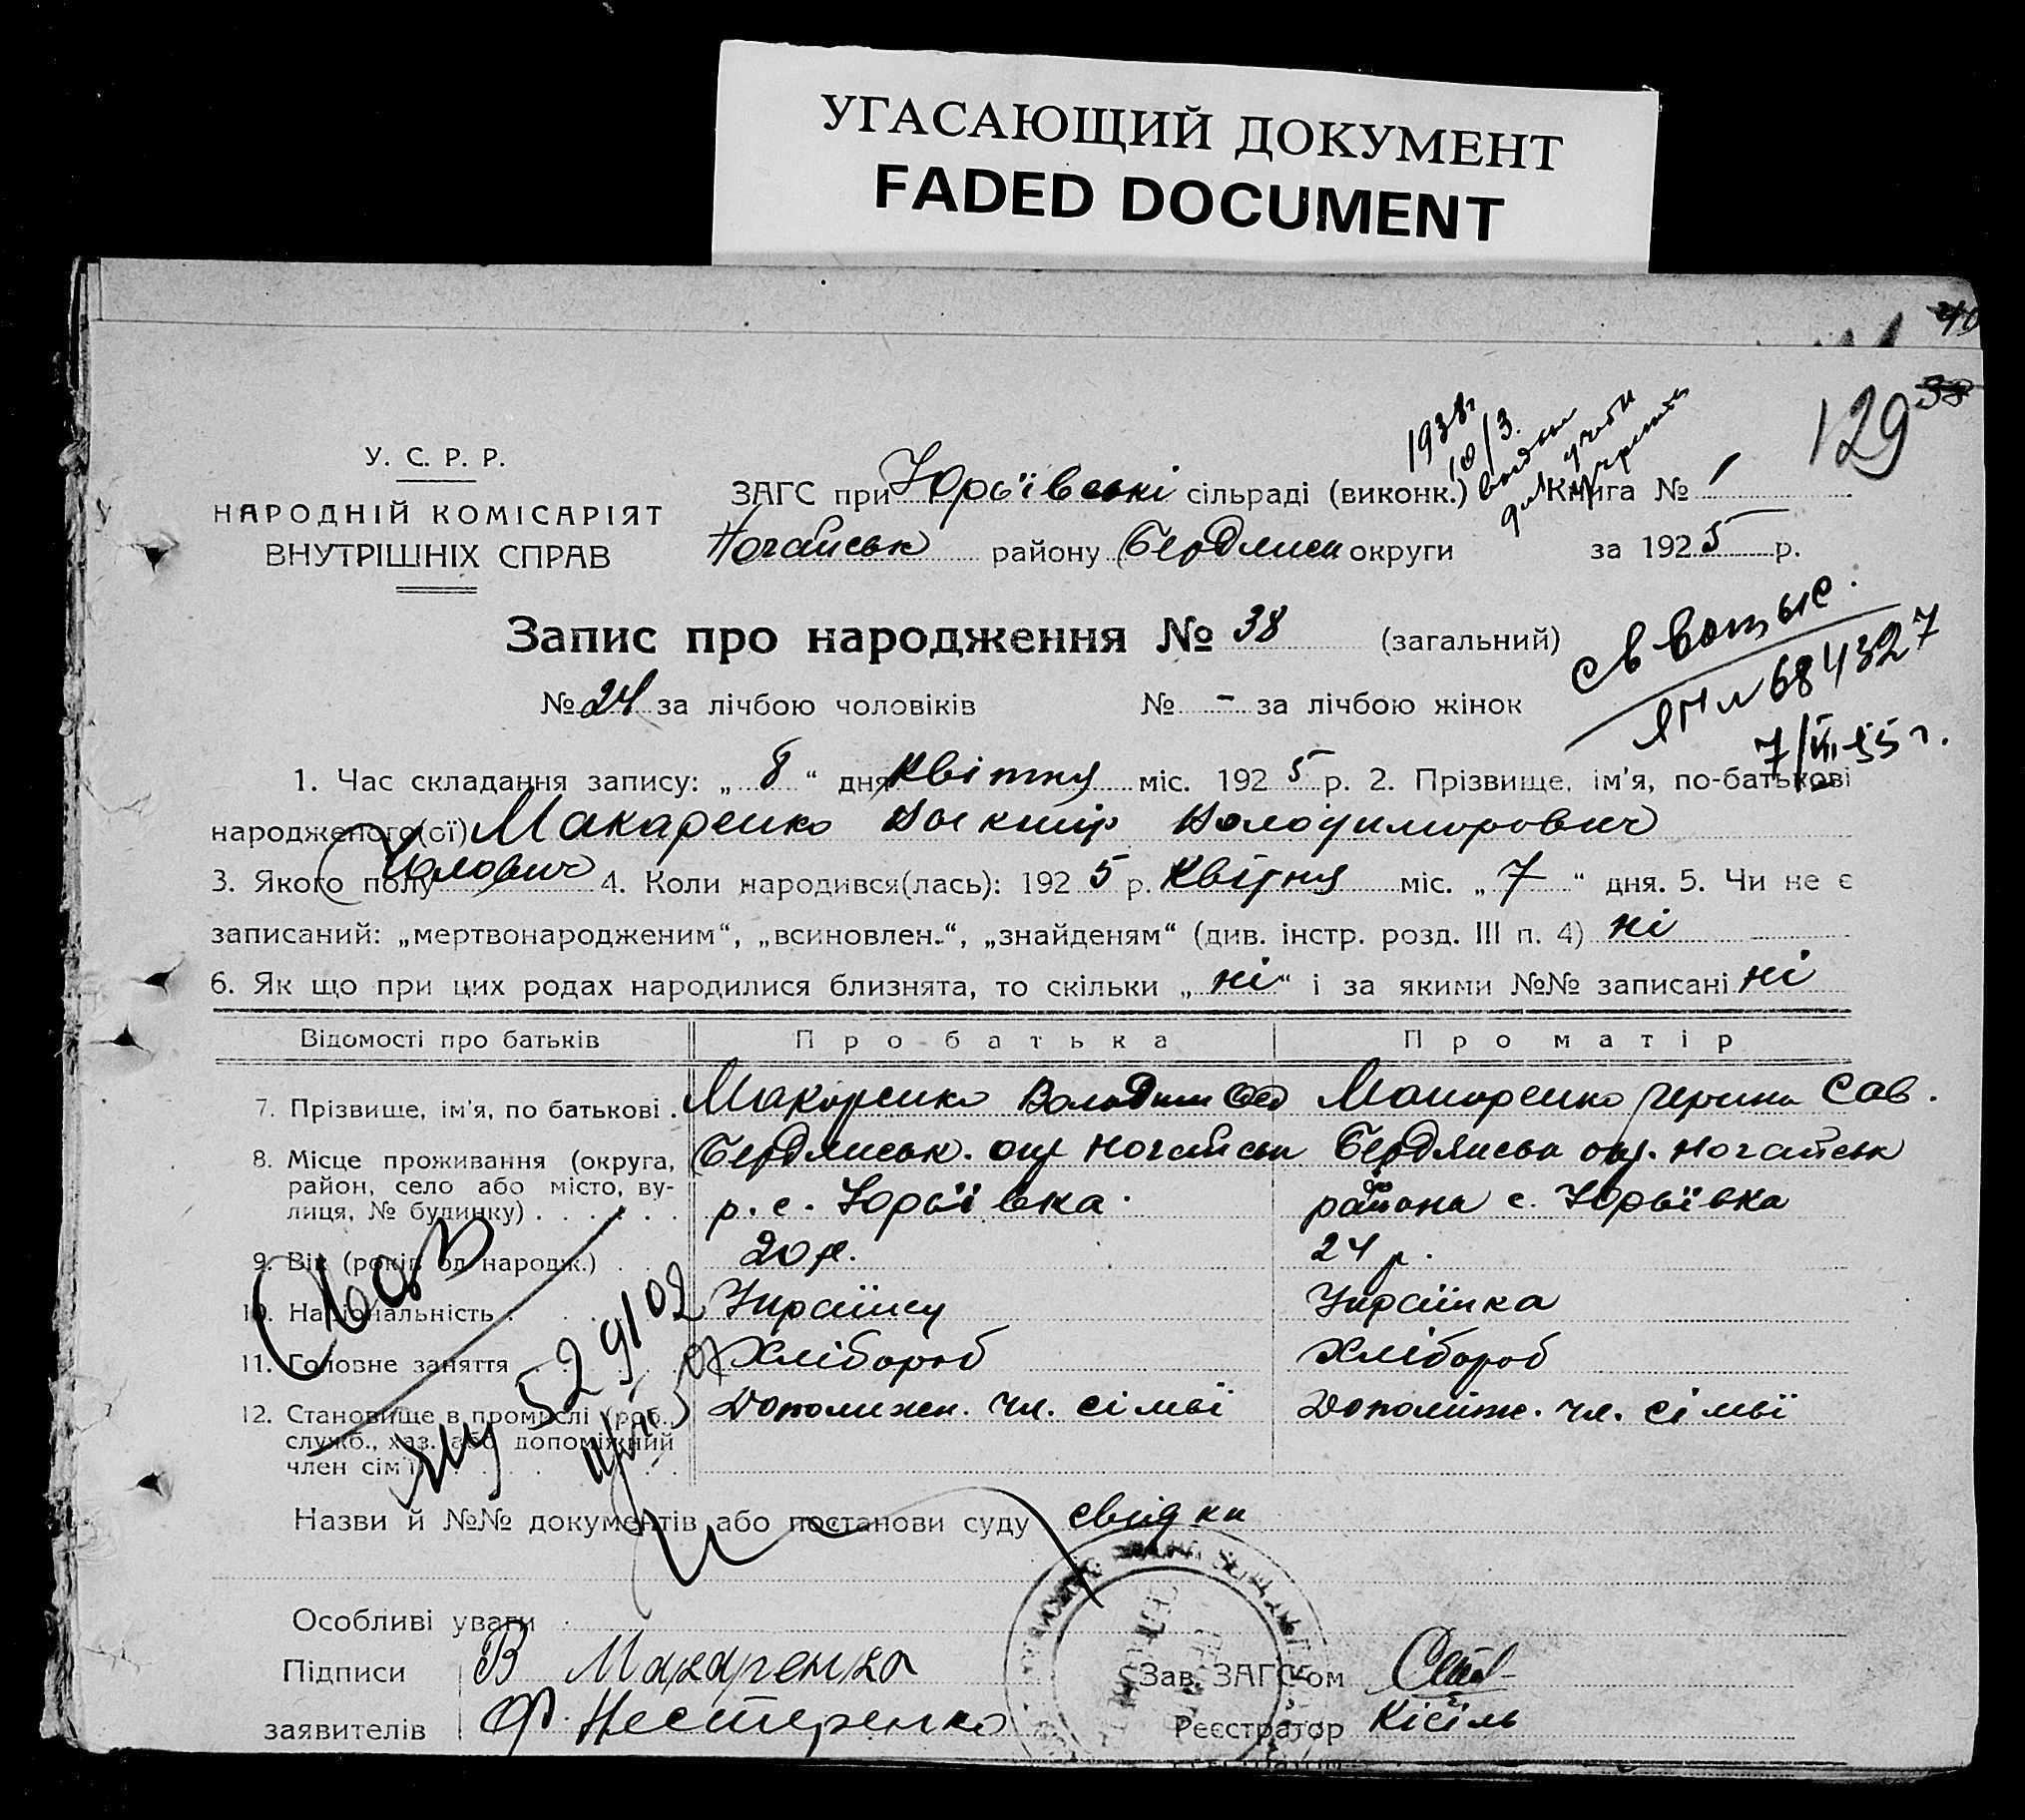 УГАСАЮЩИЙ ДОКУМЕНТ
FADED DOCUMENT
40
129 38
1938г
10/3.
У. С. Р. Р.
НАРОДНІЙ КОМІСАРІЯТ
ВНУТРІШНІХ СПРАВ
ЗАГС при Юрьївські сільраді (виконк.) Книга № 1
Ногайськ району Бердянськ округи за 1925 р.
Запис про народження № 38 (загальний)
№ 24 за лічбою чоловіків № - за лічбою жінок
684327
7/III-55 г.
1. Час складання запису: „ 8 “ дня Квітня міс. 1925 р. 2. Прізвище, ім'я, по-батькові
народженого(ої) Макаренко Володимирович
3. Якого полу Чоловіч 4. Коли народився(лась): 1925 р. Квітня міс. „ 7 “ дня. 5. Чи не є
записаний: „мертвонародженим“, „всиновлен.“, „знайденям“ (див. інстр. розд. III п. 4) ні
6. Як що при цих родах народилися близнята, то скільки „ ні “ і за якими №№ записані ні
Відомості про батьків Про батька Про матір
7. Прізвище, ім'я, по батькові . Макаренко Володим Макаренко Сав.
8. Місце проживання (округа, Бердянськ. окр Ногайськ Бердянськ окр. Ногайськ
район, село або місто, ву- р. с. Юрьївка района с. Юрьївка
лиця, № будинку) . . . . . .
9. Вік (років од народж.) . . 20 р. 24 р.
10. Національність . Українец Українка
11. Головне заняття . . Хлібороб Хлібороб
12. Становище в промислі (роб., Дополижн. чл. сімьї Дополіжн. чл. сімьї
служб., хаз. або допоміжний
член сім'ї) . . . .
529102
Назви й №№ документів або постанови суду свідки
Особливі уваги
Підписи В Макаренко Зав. ЗАГС'ом
заявителів Ф. Нестеренко Реєстратор Кісіль